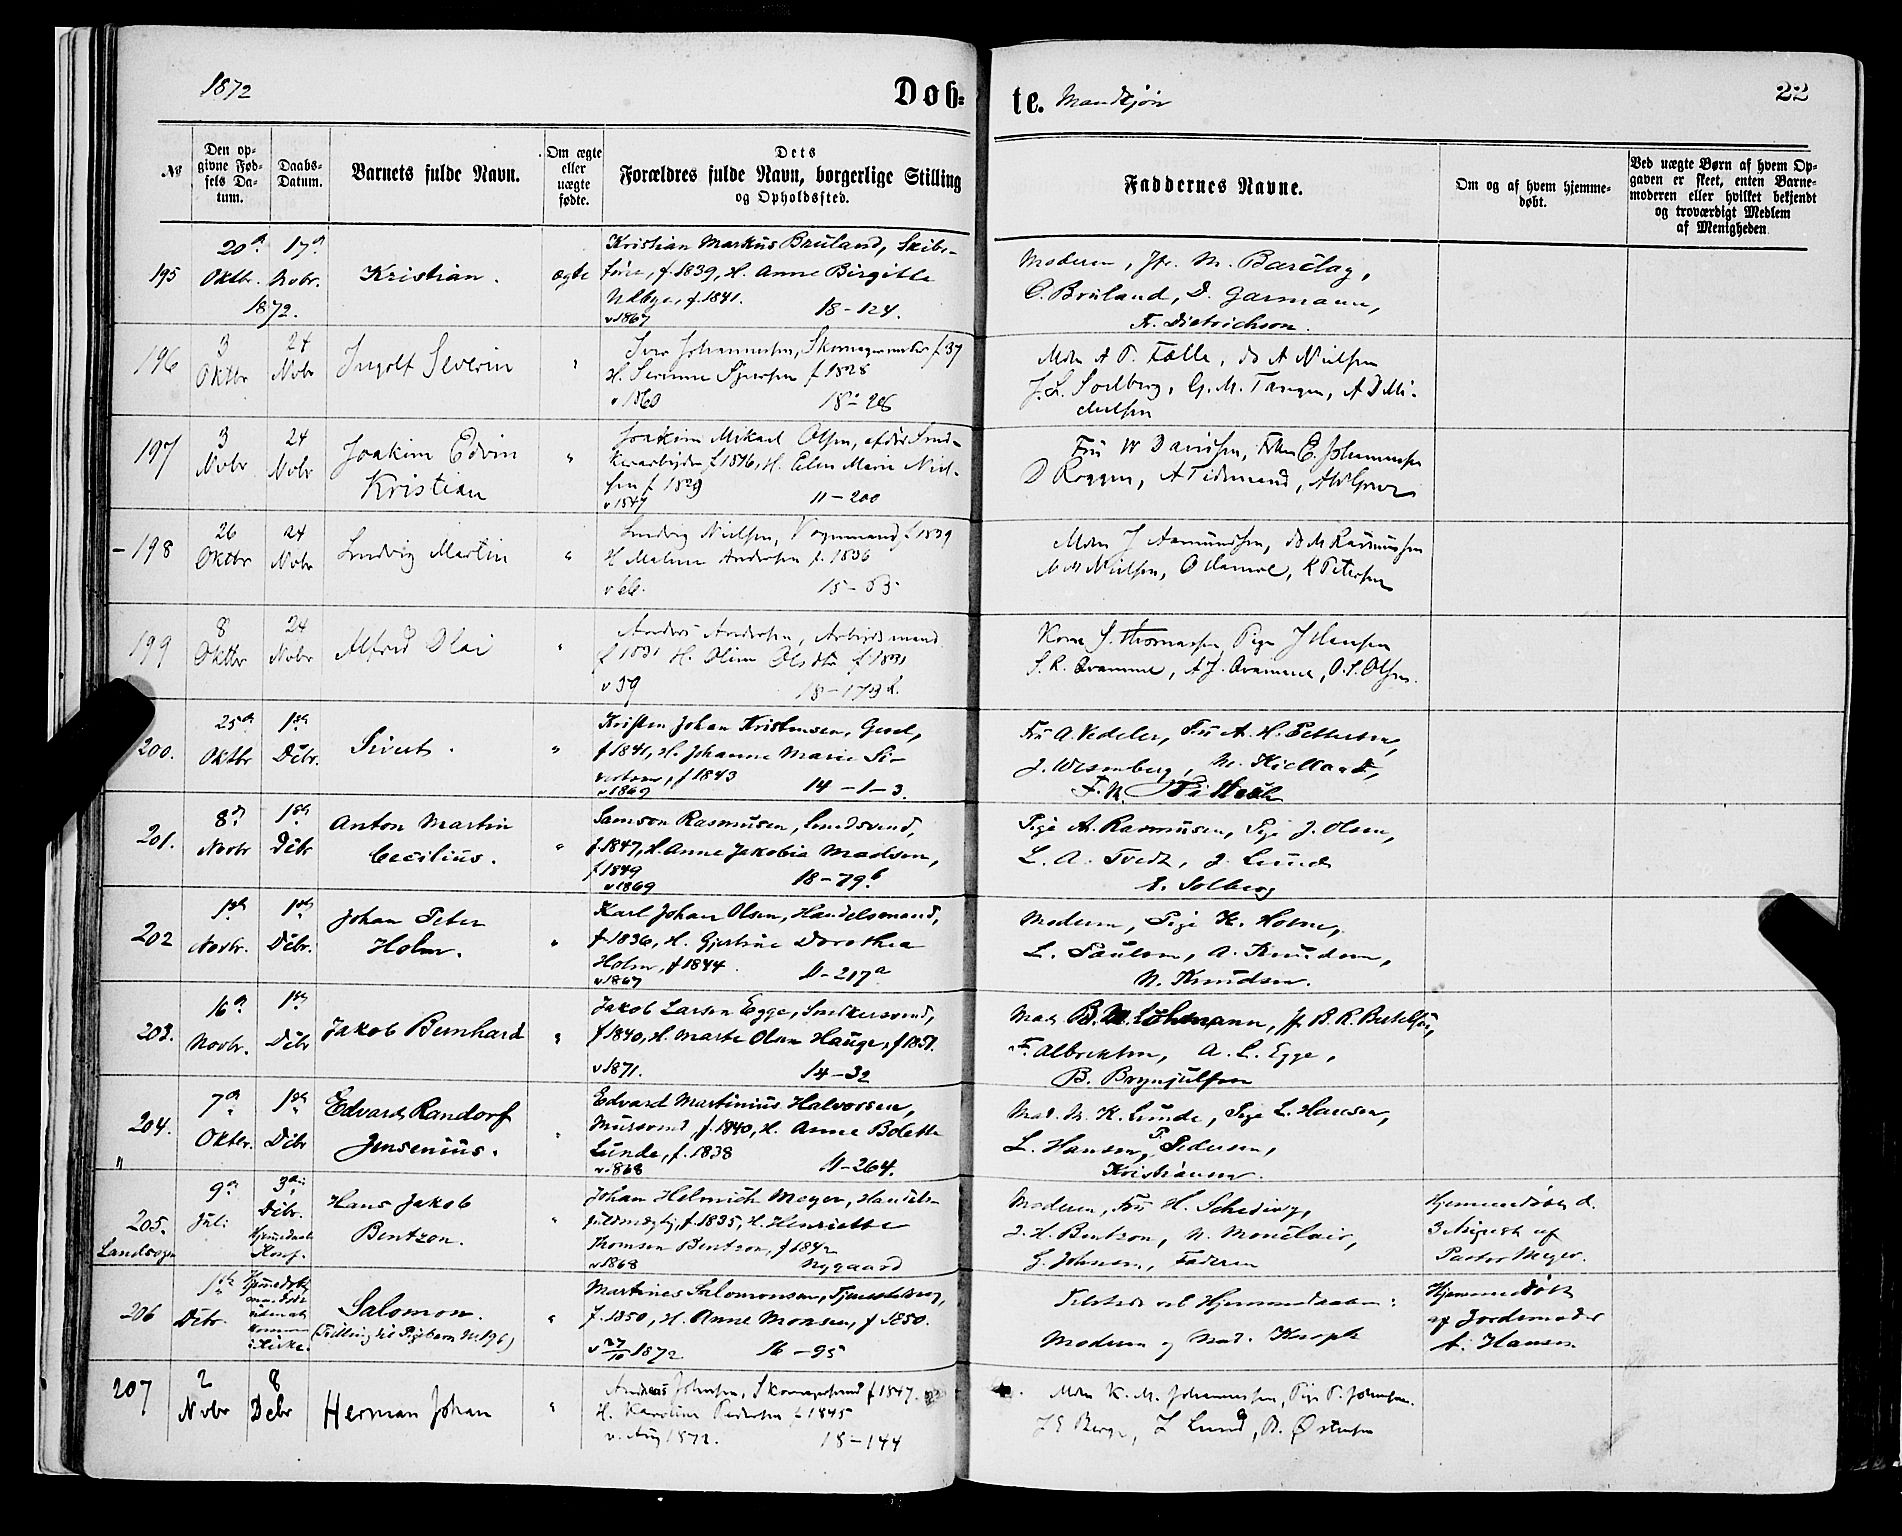 1872
Døb=
te. Mandkjøn
22
No
Den op-
givne Fød-
sels Da-
tum.
Daabs-
Datum.
Barnets fulde Navn.
Om ægte
eller
uægte
fødte.
Dets
Forældres fulde Navn, borgerlige Stilling
og Opholdssted.
Faddernes Navne.
Om og af hvem hjemme-
døbt.
Ved uægte Børn af hvem Op-
gaven er skeet, enten Barne-
moderen eller hvilket bekjendt
og troværdigt Medlem
af Menigheden
195
20de
Oktbr.
1872.
17de
Novbr.
Kristian.
ægte
Kristian Markus Bruland, Skibs-
fører, f. 1839, H. Anne Birgitte
Udbye, f. 1841.
v 1867 18-124.
Moderen, Fr. M. Barclay,
C. Bruland, D. Garmann,
K. Dietrichson.
196
3
Oktbr
24
Nvbr
Ingolf Severin
"
Iver Johannesen, Skomagermester f 37
H. Serine f 1828
v 1860 18-28
Mdm A P. Falle, do A Nielsen
J. L. Soelberg, G. M. Tangen, A D Mi-
chelsen
197
3
Nvbr
24
Nvbr
Joakim Edvin
Kristian
"
Joakim Mikael Olsen, Sned-
kerarbejder f 1816, H. Elen Marie Niel-
sen f 1829
v 1847 11-200
Fru W Davidsen, E. Johannessen
D Roggen, A Tidemand,
- 198
26
Oktbr
24
Nvbr
Ludvig Martin
"
Ludvig Nielsen, Vognmand f. 1839
H Malene Andersen f. 1836
v 66. 15-53
Mdm J Aamundsen, do M Rasmussen
N M Nielsen, O Hamre, K Petersen
199
8
Oktbr
24
Nvbr
Alfred Olai
"
Anders Andersen, Arbejdsmand
f 1831 H. Oline Olsdtr f 1831
v 59 18-173 b.
Kone S. Thomassen, Pige J Hansen
S. R. Qvamme, A J. Qvamme, O. S. Olsen.
200.
25de
Oktbr
1ste
Dcbr.
Sivert.
"
Kristen Johan Kristensen, Gesel,
f 1841, H. Johanne Marie Si-
vertsen, f 1843
v 1869 14-1-3.
Fru A. Vedeler, Fru A. H. Pettersen,
J. Wesenberg, M. Kielland,
201.
8de
Novbr
1ste
Dcbr
Anton Martin
Cecilius.
"
Samson Rasmusen,
f. 1847, H. Anne Jakobia Madsen,
f 1849
v 1869 18-79.b
Pige A. Rasmusen, Pige J. Olsen,
L. A. Tvedt, J. Lund
E. Solberg
202
1ste
Novbr.
1ste
Dcbr.
Johan Peter
Holm.
"
Karl Johan Olsen, Handelsmand,
f 1836, H. Gjertine Dorothea
Holm, f 1844.
v 1867 11-217a
Moderen, Pige K. Holm,
L. Paulsen, A. Knudsen,
N. Knudsen.
203.
16de
Novbr.
1ste
Dcbr
Jakob Bernhard
"
Jakob Larsen Egge, Snedkersvend,
f 1840, H. Marte Olsen Hauge, f 1851.
v 1871. 14-32
Mad. B. M. Lohmann, Jf B. R. Bertelsen,
F. Albrektsen, A. L. Egge,
B. Brynjulfsen
204.
"
7de
Oktbr.
1ste
Dcbr
Edvard Randorf
Jensenius.
"
Edvard Martinius Halvorsen,
Mursvend, f. 1840, H. Anne Bolette
Lunde, f. 1838
v. 868 11-264.
Mad. M. K. Lunde, Pige L. Hansen,
L. Hansen, P. Pedersen,
Kristiansen.
205.
Landsogn
9de
Juli
3die
Dcbr.
Hans Jakob
Bentzon.
"
Johan Helmich Meyer, Handels-
fuldmægtig, f. 1835, H. Henriette
Thomsen Bentzon, f 1842
v 1868 Nygaard
Moderen, Fru H. Schediwy,
J. H. Bentzon, N. Monclair,
G. Johnsen, Faderen
Hjemmedøbt d.
3 August af
Pastor Meyer.
206
1ste
Dcbr.
Salomon.
(Tvilling til Pigebarn No 196)
"
Martines Salomonsen,
f. 1850, H. Anne Monsen, f 1850.
v 27/10 1872 16-95
Tilstede ved Hjemmedaaben:
Moderen og Mad. Knoph
Hjemmedøbt
af Jordemoder
A. Hansen.
207
2
Nvbr
8
Dcbr
Herman Johan
"
Andreas Johnsen, Skomagersvend f 1847.
H. Karoline Pedersen f. 1845
v. Aug 1872. 18-144
Mdm K. M. Johannessen, Pige P. Johnsen.
J E Berge, J Lund, B. Østensen